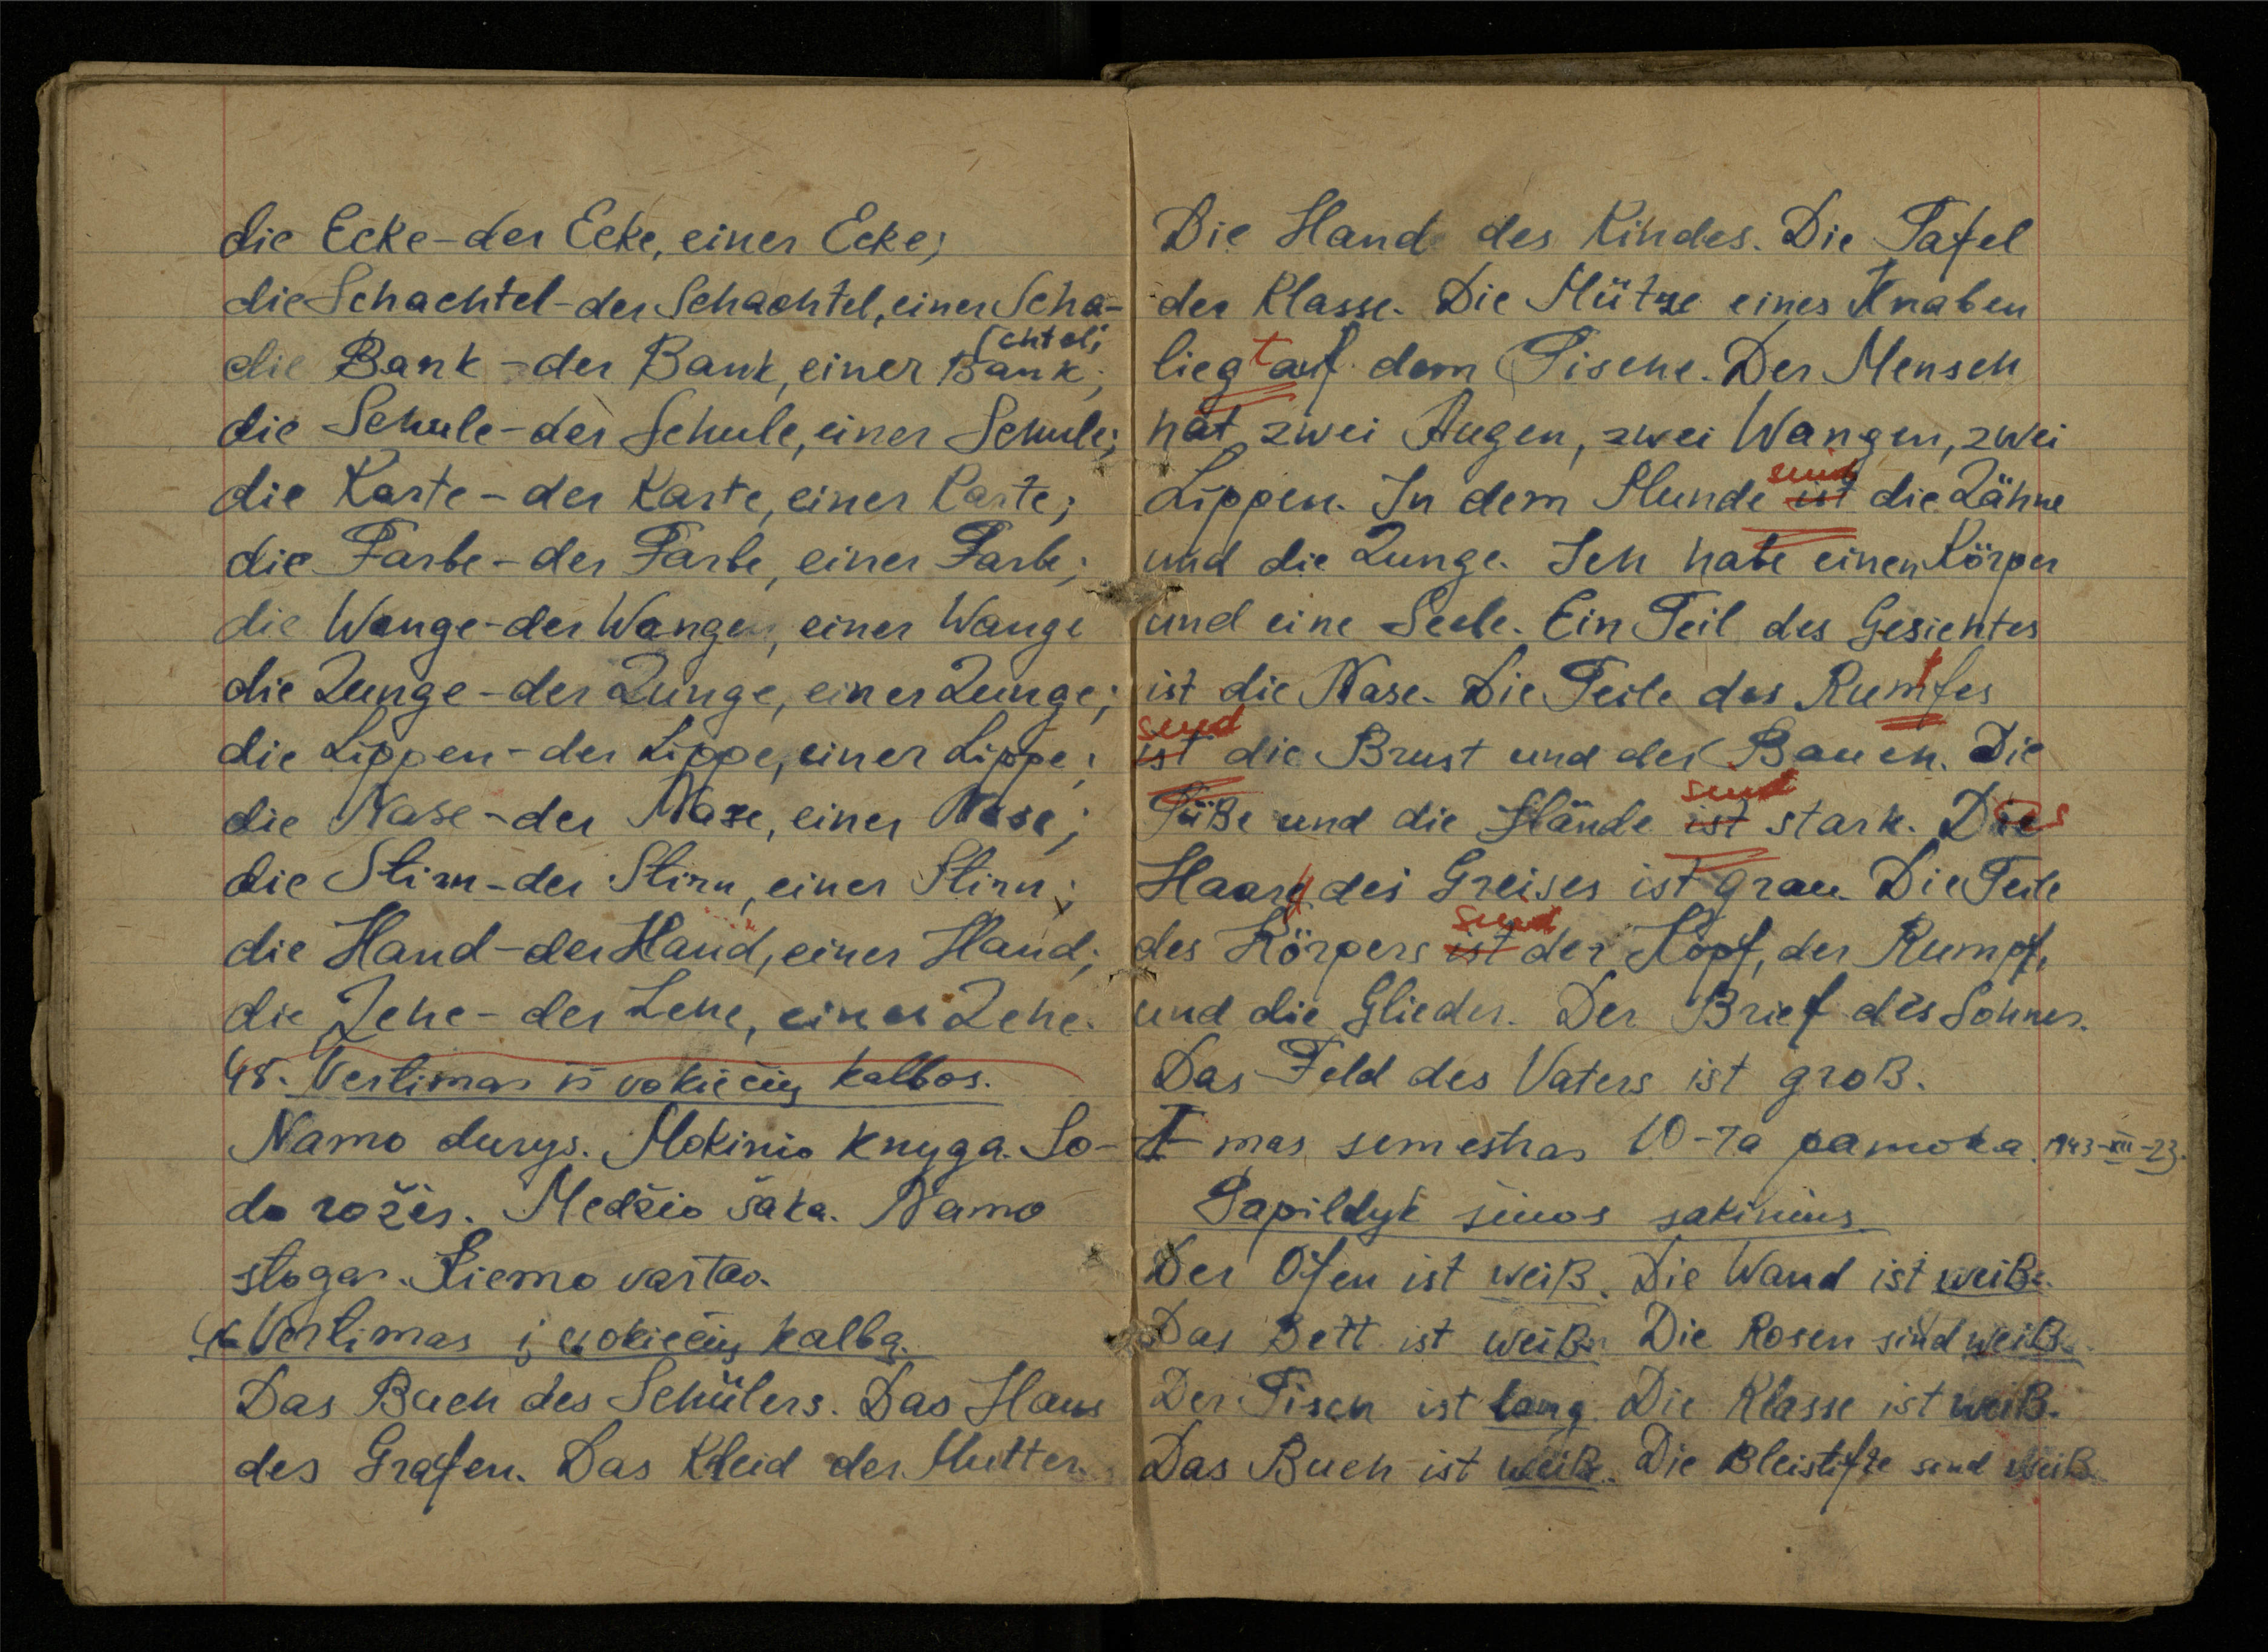 die Ecke – der Ecke, einer Ecke;
die Schachtel – der Schachtel, einer Scha-
chtel;
die Bank – der Bank, einer Bank;
die Schule – der Schule, einer Schule;
die Karte – der Karte, einer Karte;
die Farbe – der Farbe, einer Farbe;
die Wange – der Wangen, einer Wange
die Zunge – der Zunge, einer Zunge;
die Lippen – der Lippe, einer Lippe;
die Nase – der Nase, einer Nase;
die Stirn – der Stirn, einer Stirn;
die Hand – der Hand, einer Hand;
die Zehe – der Zehe, einer Zehe.
45. Vertimas iš vokiečių kalbos.
Namo durys. Mokinio knyga. So-
do rožės. Medžio šaka. Namo
stogas. Kiemo vartai.
46 Vertimas į vokiečių kalbą.
Das Buch des Schülers. Das Haus
des Grafen. Das Kleid der Mutter.
Die Hand des Kindes. Die Tafel
der Klasse. Die Mütze eines Knaben
liegt auf dem Tische. Der Mensch
hat zwei Augen, zwei Wangen, zwei
sind
Lippen. In dem Munde ist die Zähne
und die Zunge. Ich habe einen Körper
und eine Seele. Ein Teil des Gesichtes
ist die Nase. Die Teile des Rumfes
sind
ist die Brust und der Bauch. Die
sind
Füße und die Hände ist stark. Das
Haare des Greises ist grau. Die Teile
sind
des Körpers ist der Kopf, der Rumpf,
und die Glieder. Der Brief des Sohnes.
Das Feld des Vaters ist groß.
I-mas semestras 10-ta pamoka. 1943-XII-23.
Papildyk šiuos sakinius
Der Ofen ist weiß. Die Wand ist weiß.
Das Bett ist weiß. Die Rosen sind weiß.
Der Tisch ist lang. Die Klasse ist weiß.
Das Buch ist weiß. Die Bleistifte sind weiß.